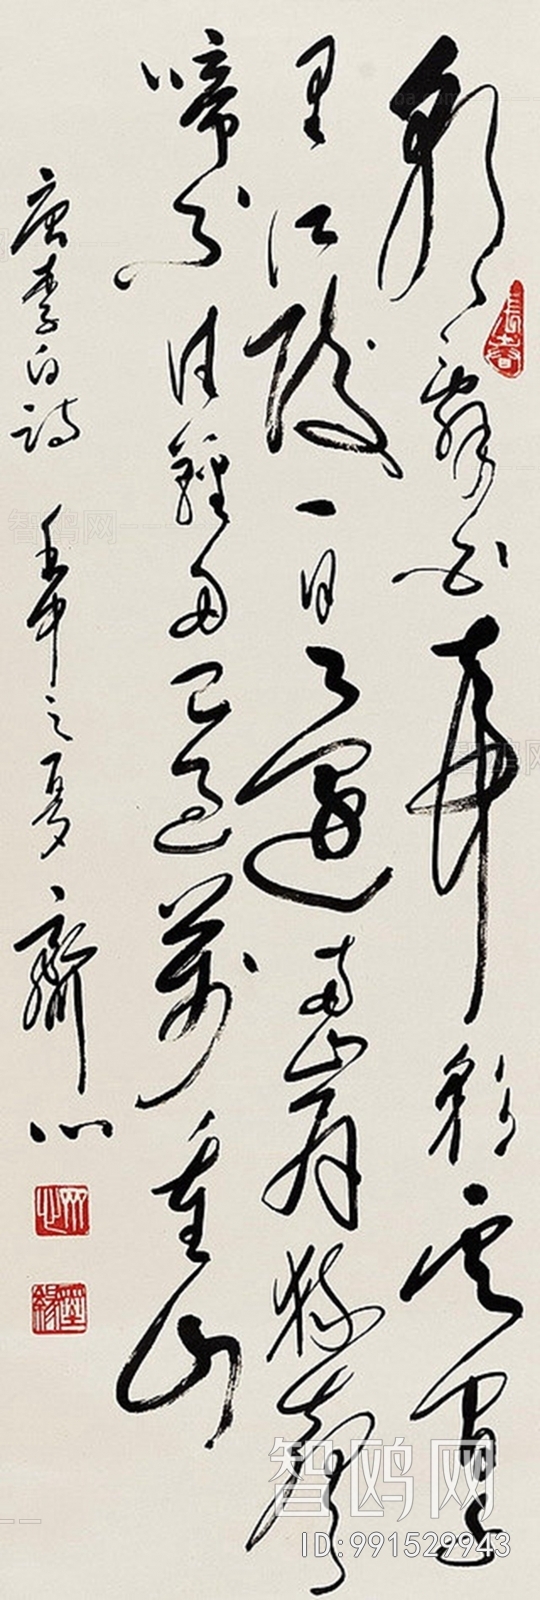 朝辭白帝彩雲間千
里江陵一日還兩岸猿聲
啼不住輕舟已過萬重山
唐李白詩 壬申之夏 齊心
墨緣
智鸥网
ID:991529943